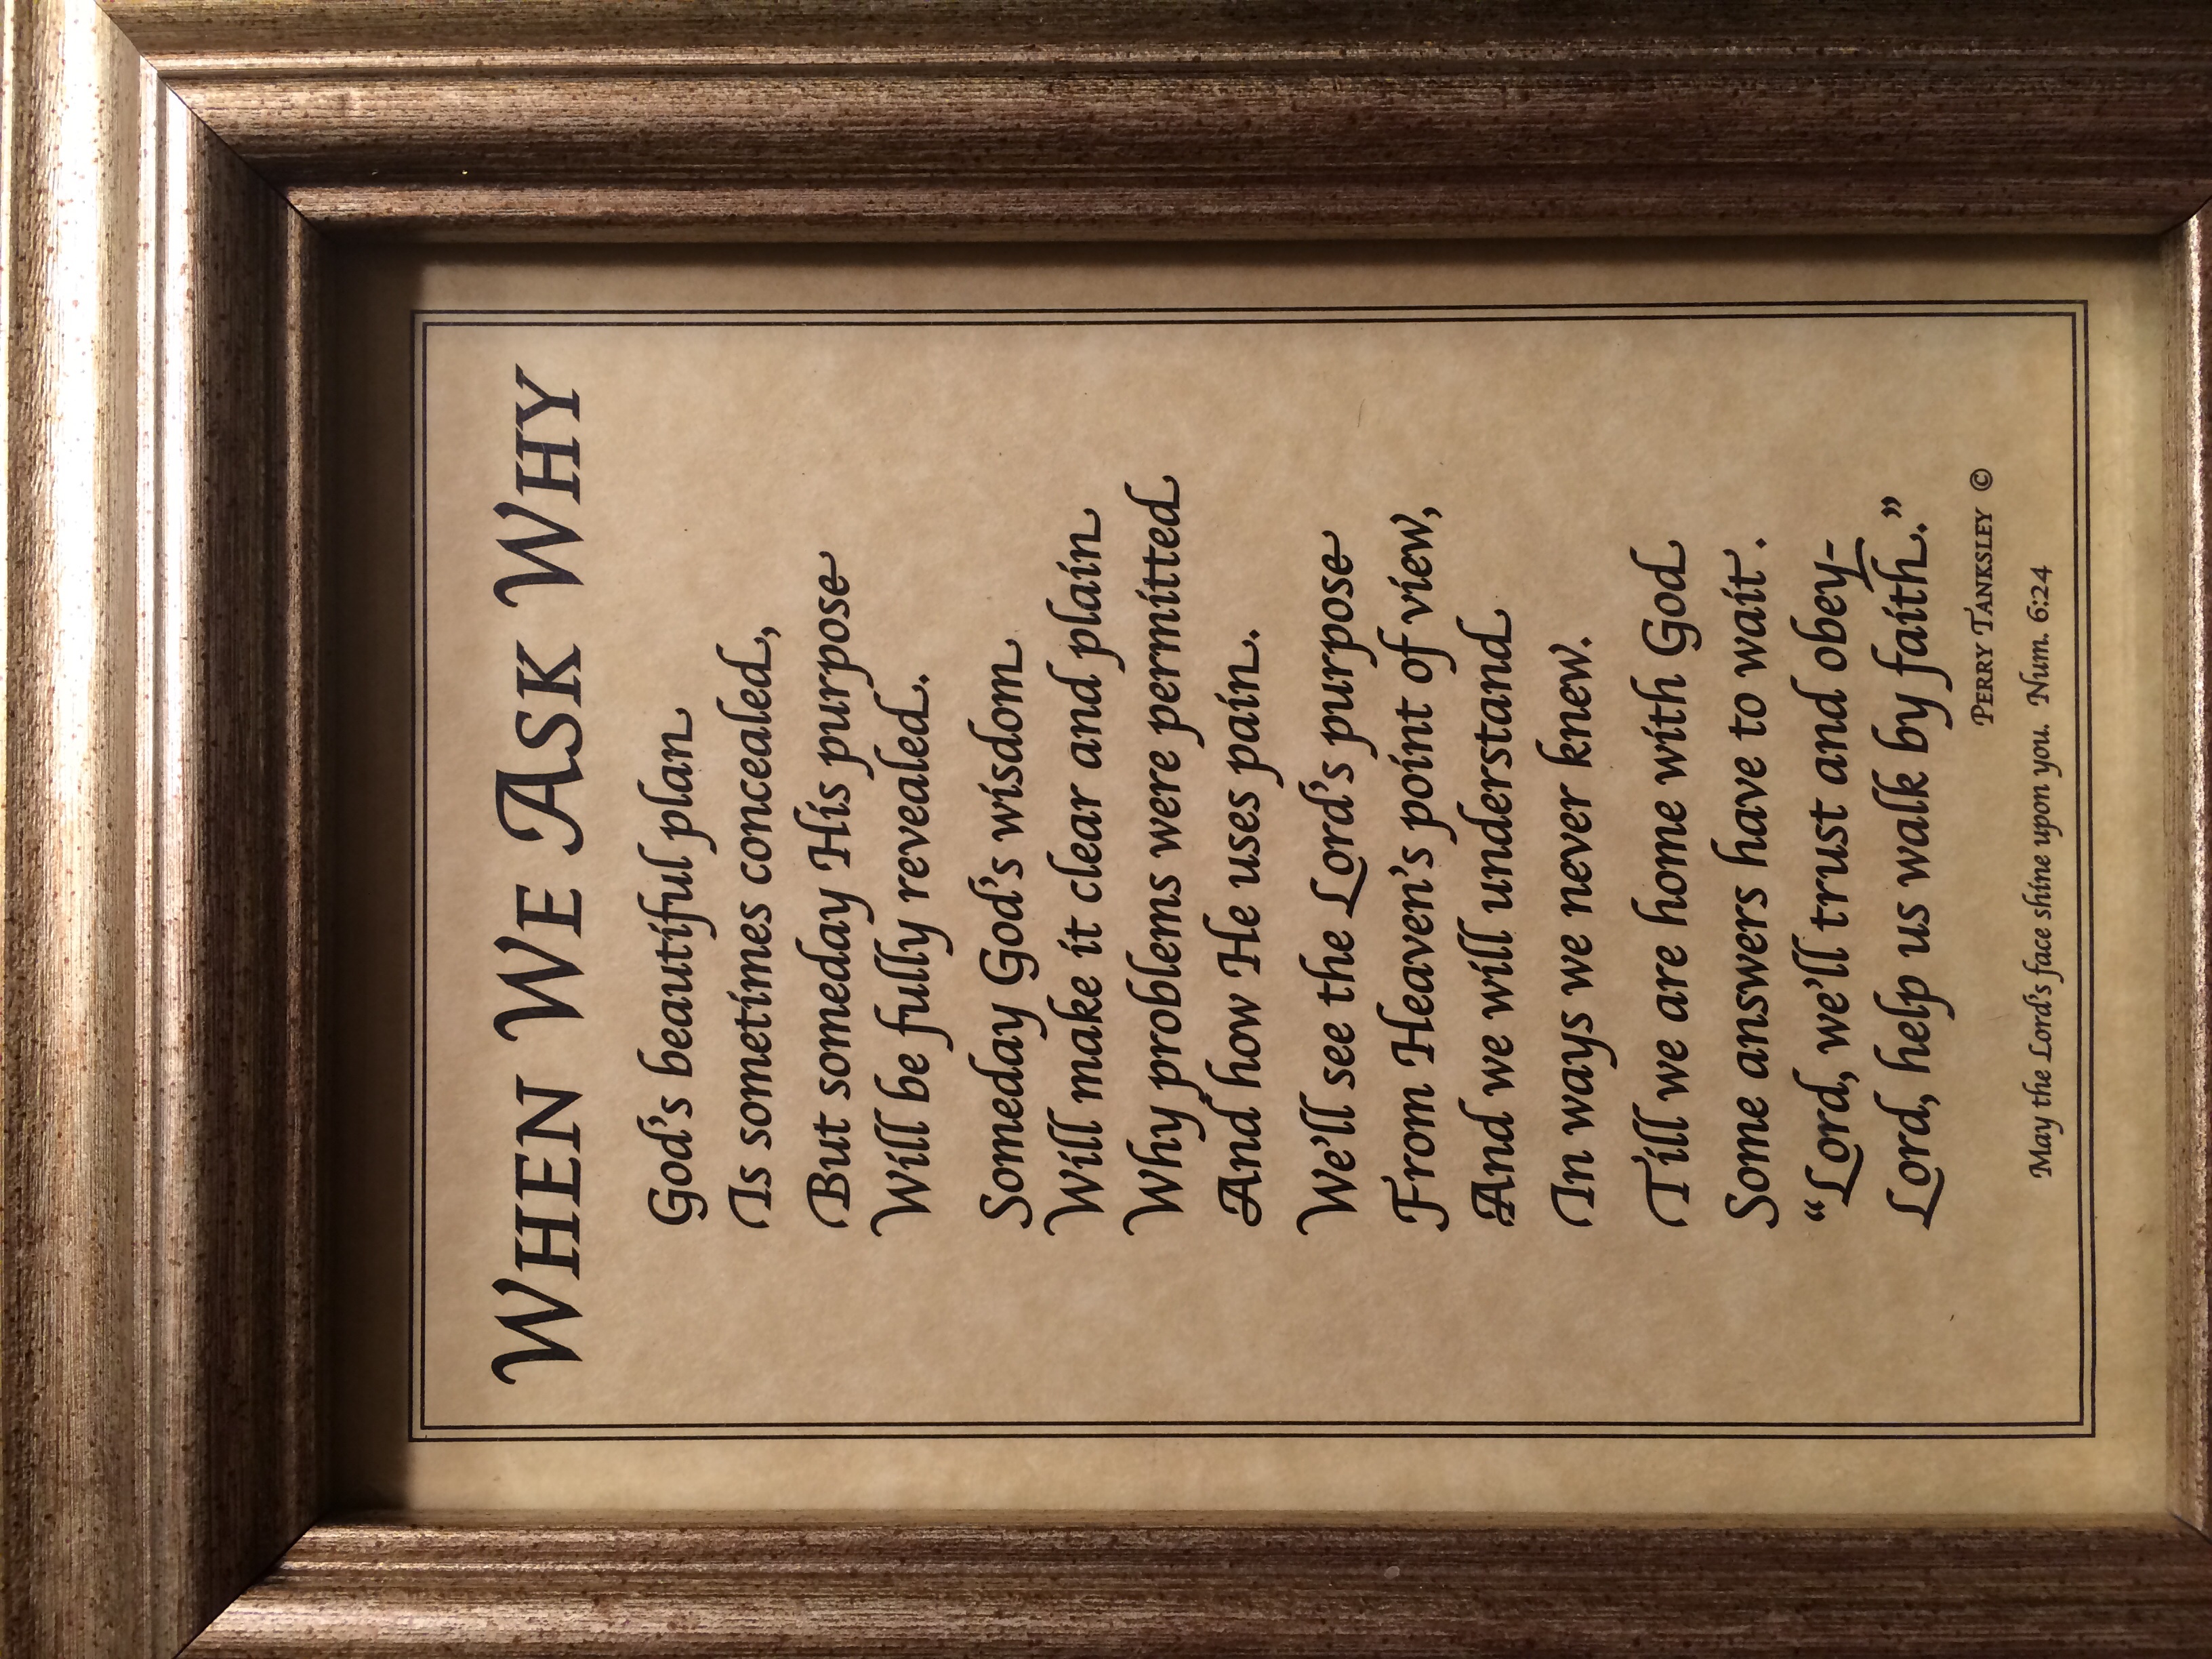 WHEN WE ASK WHY
God's beautiful plan
Is sometimes concealed,
But someday His purpose
Will be fully revealed.
Someday God's wisdom
Will make it clear and plain
Why problems were permitted
And how He uses pain.
We'll see the Lord's purpose
From Heaven's point of view,
And we will understand
In ways we never knew.
Till we are home with God
Some answers have to wait.
“Lord, we'll trust and obey-
Lord, help us walk by faith.”
PERRY TANKSLEY ©
May the Lord's face shine upon you. Num. 6:24